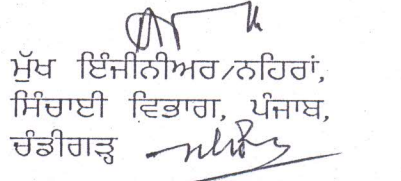 ਮੁੱਖ ਇੰਜੀਨੀਅਰ/ਨਹਿਰਾਂ,
ਸਿੰਚਾਈ ਵਿਭਾਗ, ਪੰਜਾਬ,
ਚੰਡੀਗੜ੍ਹ